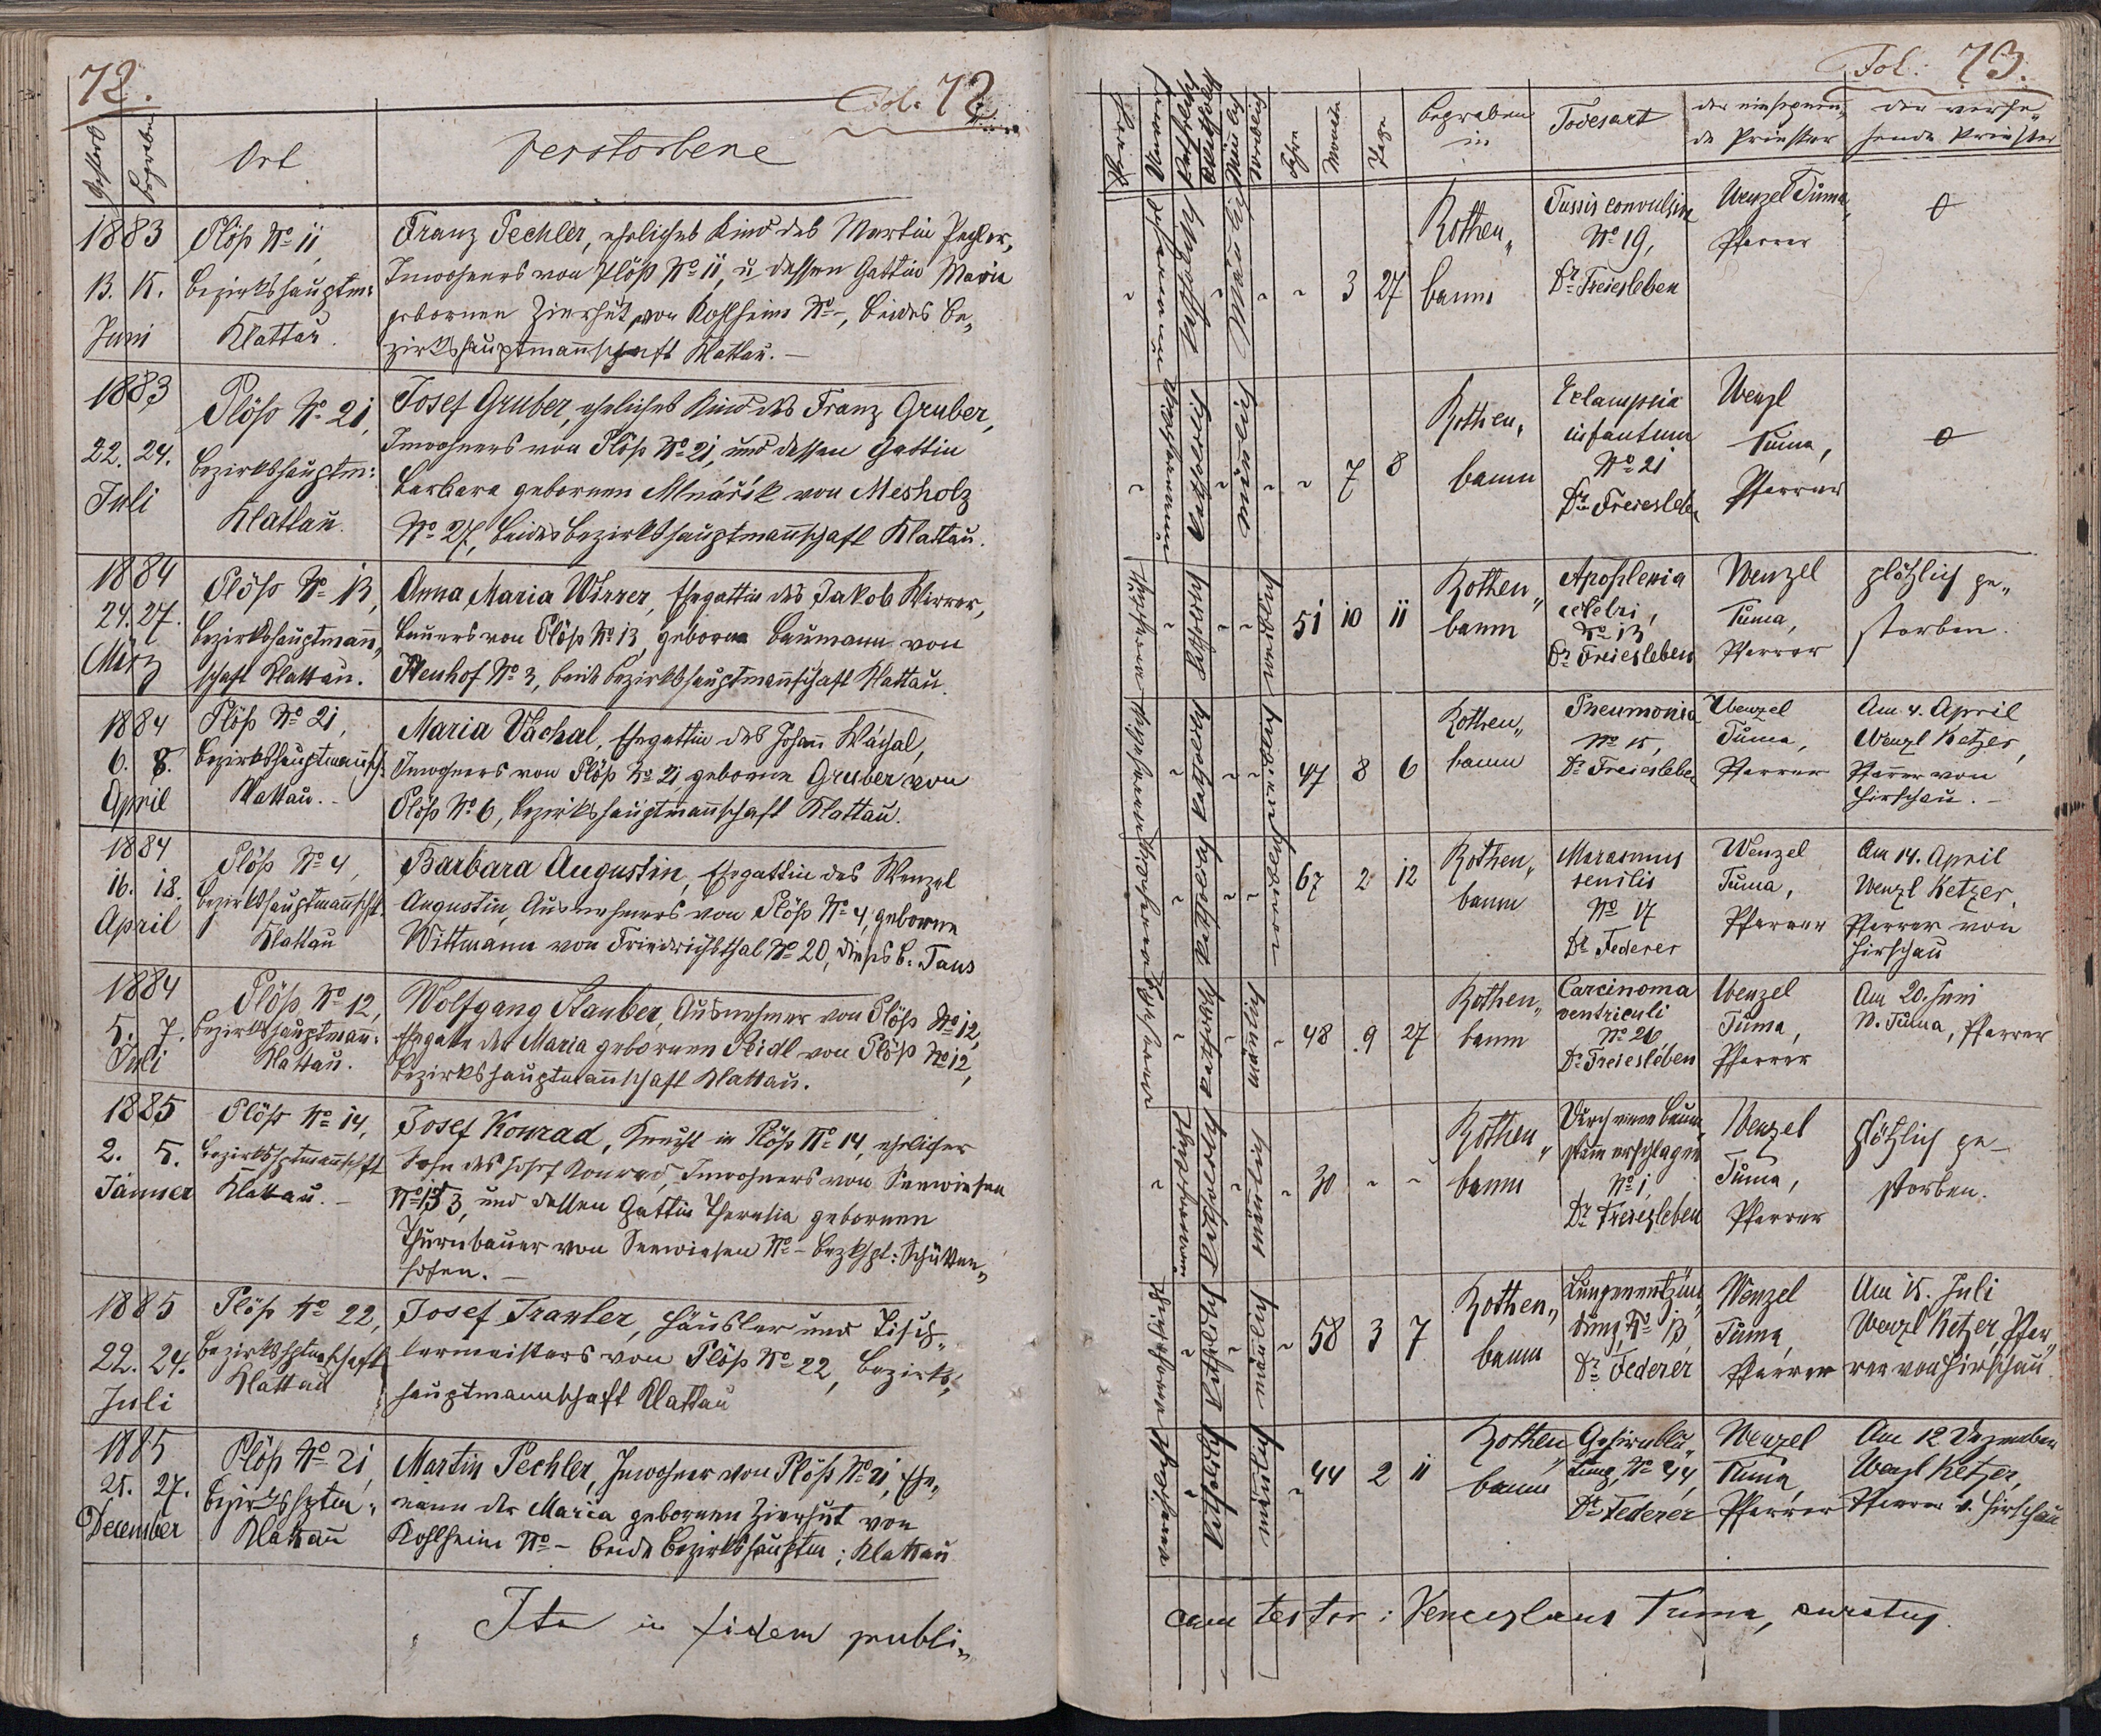 72.
Fol. 72
Gestorb
Begraben
Ort
Verstorbene
1883
13. 15.
Juni
Plöß No 11,
Bezirkshauptm:
Klattau.
Franz Pechler, eheliches Kind des Martin Pechler,
Inwohners von Plöß No 11, u. dessen Gattin Maria
gebornen Zierhut von Kohlheim No –, beides Be„
zirkshauptmannschaft Klattau. –
1883
22. 24.
Juli
Plöß No 21,
Bezirkshauptm:
Klattau.
Josef Gruber, eheliches Kind des Franz Gruber,
Inwohners von Plöß No 21, und dessen Gattin
Barbara gebornen Mlnářík von Mesholz
No 27, beides Bezirkshauptmannschaft Klattau.
1884
24. 27.
März
Plöß No 13,
Bezirkshauptmann„
schaft Klattau.
Anna Maria Wirrer, Ehegattin des Jakob Wirrer,
Bauers von Plöß No 13, geborne Baumann von
Neuhof No 3, beide Bezirkshauptmannschaft Klattau.
1884
6. 8.
April
Plöß No 21,
Bezirkshauptmannsch.
Klattau. –
Maria Váchal, Ehegattin des Johann Wáchal,
Inwohners von Plöß No 21, geborne Gruber von
Plöß No 6, Bezirkshauptmannschaft Klattau.
1884
16. 18.
April
Plöß No 4,
Bezirkshauptmannscht.
Klattau
Barbara Augustin, Ehegattin des Wenzel
Augustin, Ausnehmers von Plöß No 4, geborne
Wittmann von Friedrichsthal No 20, Taus
1884
5. 7.
Juli
Plöß No 12,
Bezirkshauptmann:
Klattau.
Wolfgang Stauber, Ausnehmer von Plöß No 12,
Ehegatte der Maria gebornen Seidl von Plöß No 12,
Bezirkshauptmannschaft Klattau.
1885
2. 5.
Jänner
Plöß No 14,
Bezirkshptmannschft
Klattau. –
Josef Konrad, Knecht in Plöß No 14, ehelicher
Sohn des Josef Konrad, Inwohners von Seewiesen
No 153, und dessen Gattin Theresia gebornen
Thurnbauer von Seewiesen No – Bezkhpt: Schütten„
hofen. –
1885
22. 24.
Juli
Plöß No 22,
Bezirkshptmschaft
Klattau
Josef Tranler, Häusler und Tisch„
lermeisters von Plöß No 22, Bezirks„
hauptmannschaft Klattau
1885
25. 27.
December
Plöß No 21,
Bezirkshptm„
Klattau
Martin Pechler, Inwohner von Plöß No 21, Ehe„
mann der Maria gebornen Zierhut von
Kohlheim No – beide Bezirkshauptm: Klattau
Ita in fidem publi„
Fol: 73.
Katholisch
Männlich
Weiblich
Jahre
Monate
Tage
Begraben
in
Todesart
der einsegnen„
de Priester
der verse„
hende Priester
Katholisch
Männlich
3 27
Rothen„
baum
Tussis convulsiva
No 19,
Dr Freiesleben
Wenzel Tuma,
Pfarrer
0
Katholisch
männlich
7 8
Rothen„
baum
Eclampsia
infantum
No 21
Dr Freiesleben
Wenzl
Tuma,
Pfarrer
0
Katholisch
weiblich
51 10 11
Rothen„
baum
Apoplexia
No 13
Dr Freiesleben
Wenzel
Tuma,
Pfarrer
plötzlich ge„
storben.
Katholisch
weiblich
47 8 6
Rothen„
baum
Pneumonia
No 15,
Dr Freiesleben
Wenzel
Tuma,
Pfarrer
Am 4. April
Wenzl Ketzer,
Pfarrer von
Hirschau. –
Katholisch
weiblich
67 2 12
Rothen„
baum
Marasmus
senilis
No 17
Dr Federer
Wenzel
Tuma,
Pfarrer
Am 14. April
Wenzl Ketzer,
Pfarrer von
Hirschau
Katholisch
männlich
48 9 27
Rothen„
baum
Carcinoma
ventriculi
No 26
Dr Freiesleben
Wenzel
Tuma,
Pfarrer
Am 20. Juni
W. Tuma, Pfarrer
Katholisch
männlich
30
Rothen„
baum
Durch einen Baum„
stamm erschlagen
No 1,
Dr Freiesleben
Wenzel
Tuma,
Pfarrer
plötzlich ge–
storben.
Katholisch
männlich
58 3 7
Rothen„
baum
Lungenentzün„
dung, No 13,
Dr Federer
Wenzel
Tuma,
Pfarrer
Am 15. Juli
Wenzl Ketzer, Pfar„
rer von Hirschau
Katholisch
männlich
44 2 11
Rothen„
baum
Gehirnblu„
tung, No 44,
Dr Federer
Wenzel
Tuma,
Pfarrer
Am 12 Dezember
Wenzl Ketzer,
Pfarrer v. Hirschau
cam testor: Venceslaus Tuma, curatus.